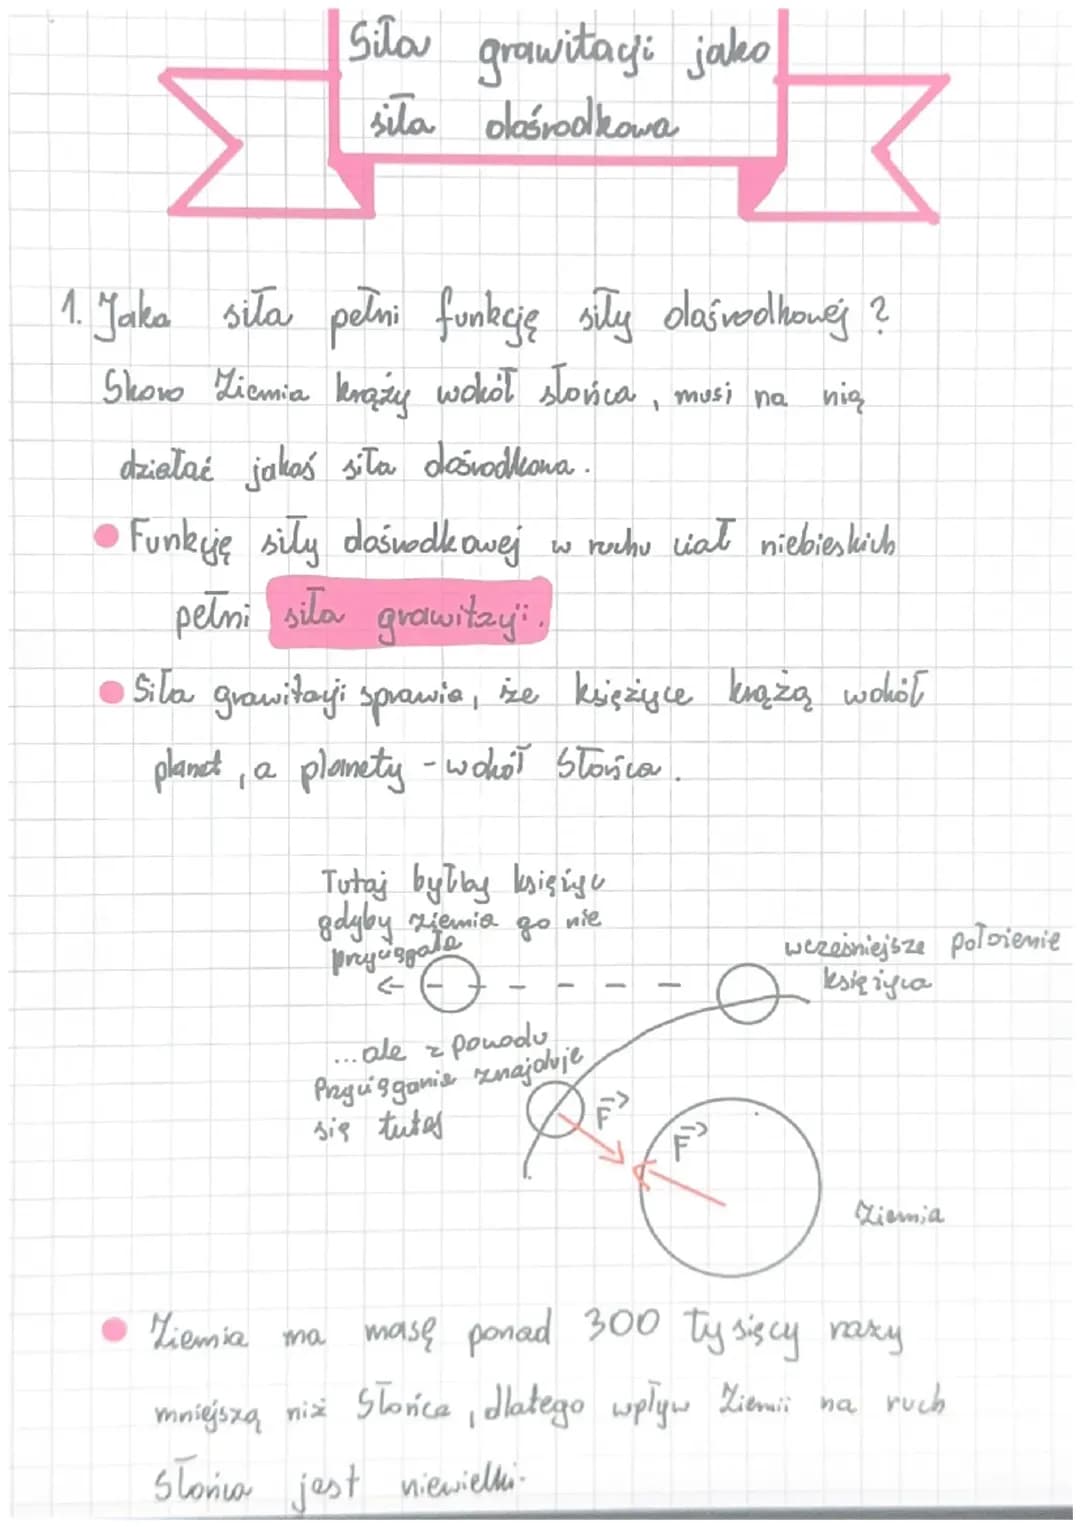 Siła grawitacji jako
siła dośrodkowa
1. Jaka siła pełni funkcję siły dośrodkowej ?
Skoro Ziemia krąży wokół słońca , musi na nią
działać jakaś siła dośrodkowa .
Funkcję siły dośrodkowej w ruchu ciał niebieskich
pełni siła grawitacji .
Siła grawitacji sprawia , że księżyce krążą wokół
planet , a planety - wokół Słońca .
Tutaj byłby księżyc
gdyby ziemia go nie
przyciągała
wcześniejsze położenie
księżyca
...ale z powodu
Przyciągania znajduje
się tutaj
F
F
Ziemia
Ziemia ma masę ponad 300 tysięcy razy
mniejszą niż Słońce , dlatego wpływ Ziemii na ruch
Słońca jest niewielki.